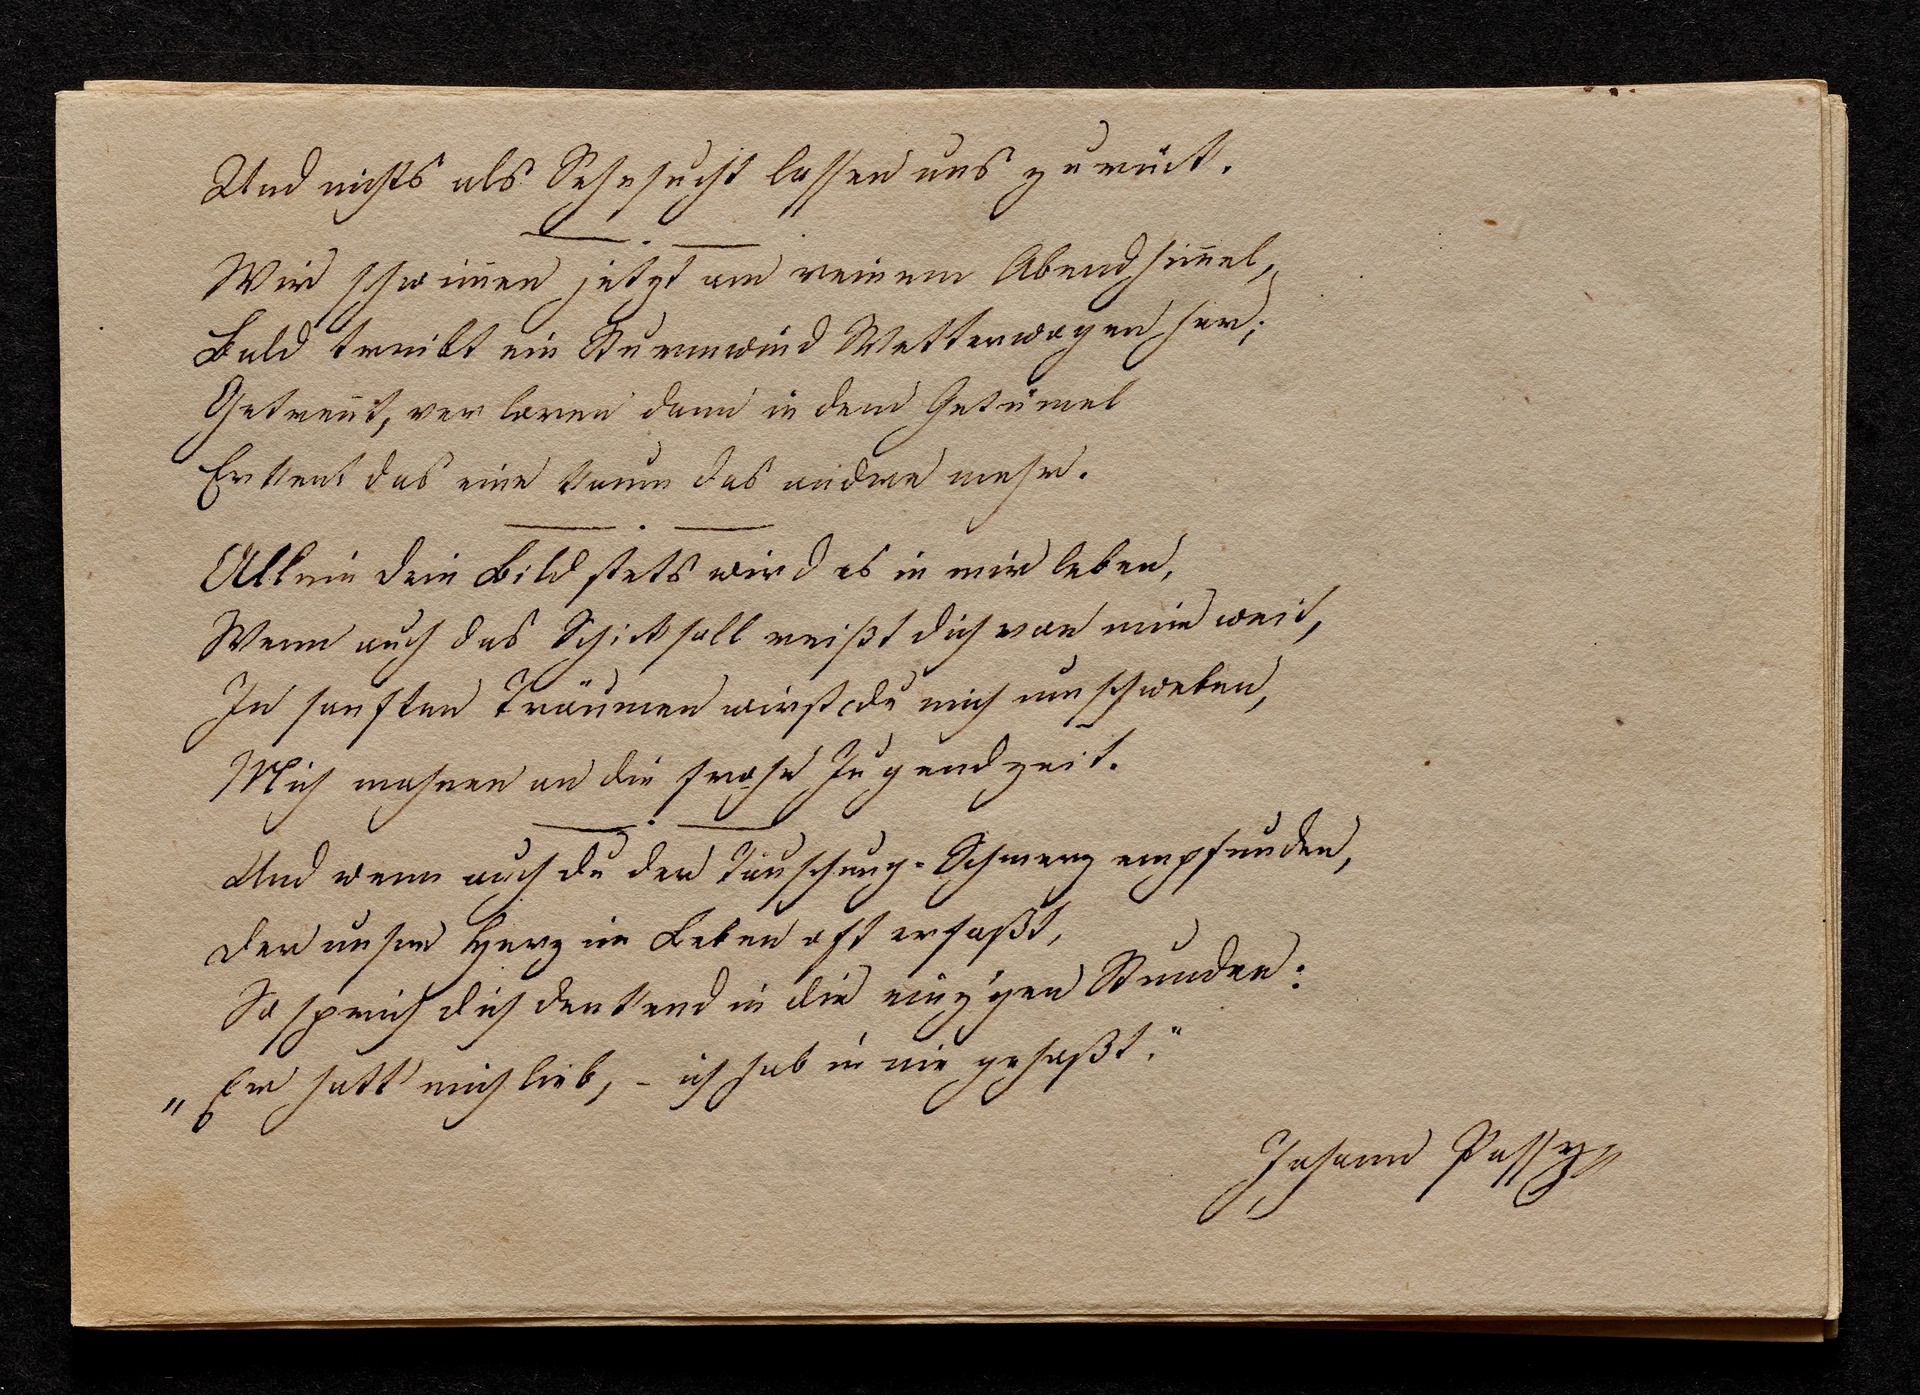 Und nichts als Sehnsucht lassen uns zurück.
Wir schwim̅en jetzt am reinem Abendhim̅el,
Bald treibt ein Sturmwind Wetterwogen her;
Getren̅t, verloren dann in dem Getüm̅el
Erkent das eine kaum das andre mehr.
Allein dein Bild stets wird es in mir leben,
Wenn auch das Schicksall reißt dich von mir weit,
In sanften Träumen wirst du mich umschweben,
Mich mahnen an die frohe Jugendzeit.
Und wenn auch du der Täuschung-Schmerz empfunden,
Der unser Herz im Leben oft erfaßt,
So sprich dich denkend in die einz'gen Stunden:
„Er hatt' mich lieb, – ich hab in nie gehaßt."
Johann Passy